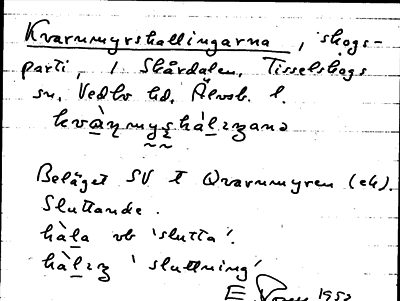 Kvarnmyrshallingarna, skogs-
parti, i Skårdalen, Tisselskogs
sn, Vedbo hd, Älvsb. l.
Beläget SV t Qvarnmyren (ek).
Sluttande.
hàla vb 'slutta'.
'sluttning'
E. 1952